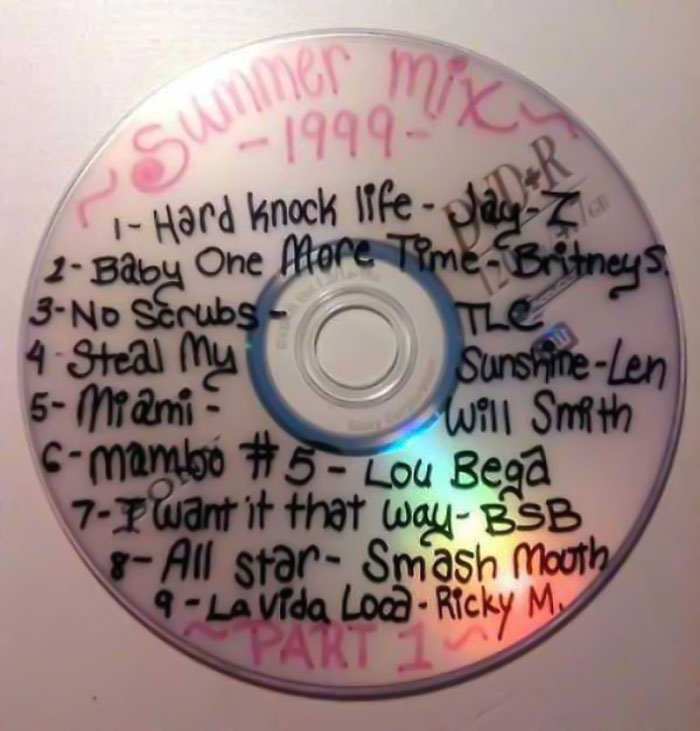 ~Summer mix~
-1999-
1- Hard knock life - Jay-Z
2- Baby One More Time - Britney S.
3- No Scrubs - TLC
4- Steal My Sunshine - Len
5- Miami - Will Smith
6- mambo #5 - Lou Bega
7- I want it that way - BSB
8- All star - Smash Mouth
9 - La Vida Loca - Ricky M.
~PART 1~
DVD+R